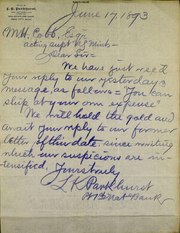 June 17, 1893
M. H. Cobb, Esq.
acting supt. U.S. Mint -
Dear Sir -
We have just rec'd
your reply to our yesterday's
message, as follows = "You can
ship at your own expense"
We will hold the gold and
await your reply to our former
letter of this date, since writing
which, our suspicions are in-
tensified. Yours truly
L. K. Parkhurst
Nat. Bank